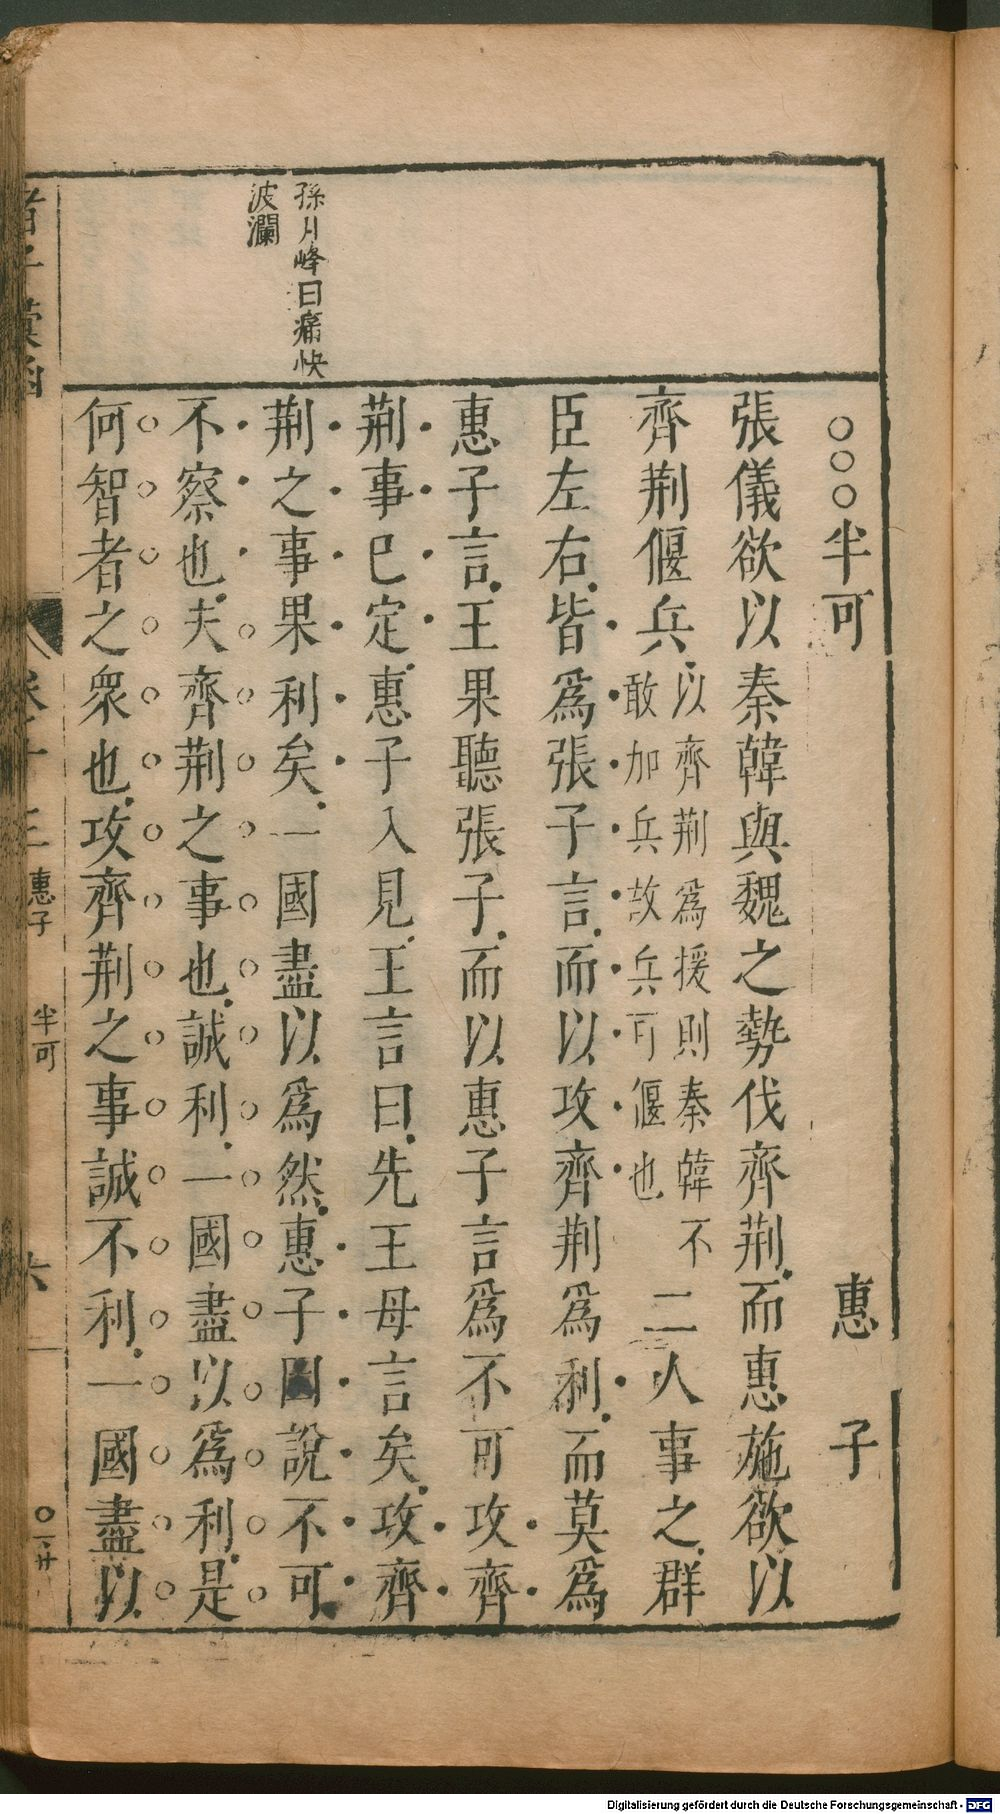 ○○○半可　惠子
張儀欲以秦韓與魏之勢伐齊荆而惠施欲以
齊荆偃兵以齊荆爲援則秦韓不敢加兵故兵可偃也二人事之群
臣左右皆爲張子言而以攻齊荆爲利而莫爲
惠子言王果聽張子而以惠子言爲不可攻齊
荆事已定惠子入見王言曰先王母言矣攻齊
荆之事果利矣一國盡以爲然惠子因說不可
不察也夫齊荆之事也誠利一國盡以爲利是
何智者之衆也攻齊荆之事誠不利一國盡以
孫月峰曰痛快
波瀾
惠子
半可
六
Digitalisierung gefördert durch die Deutsche Forschungsgemeinschaft - DFG